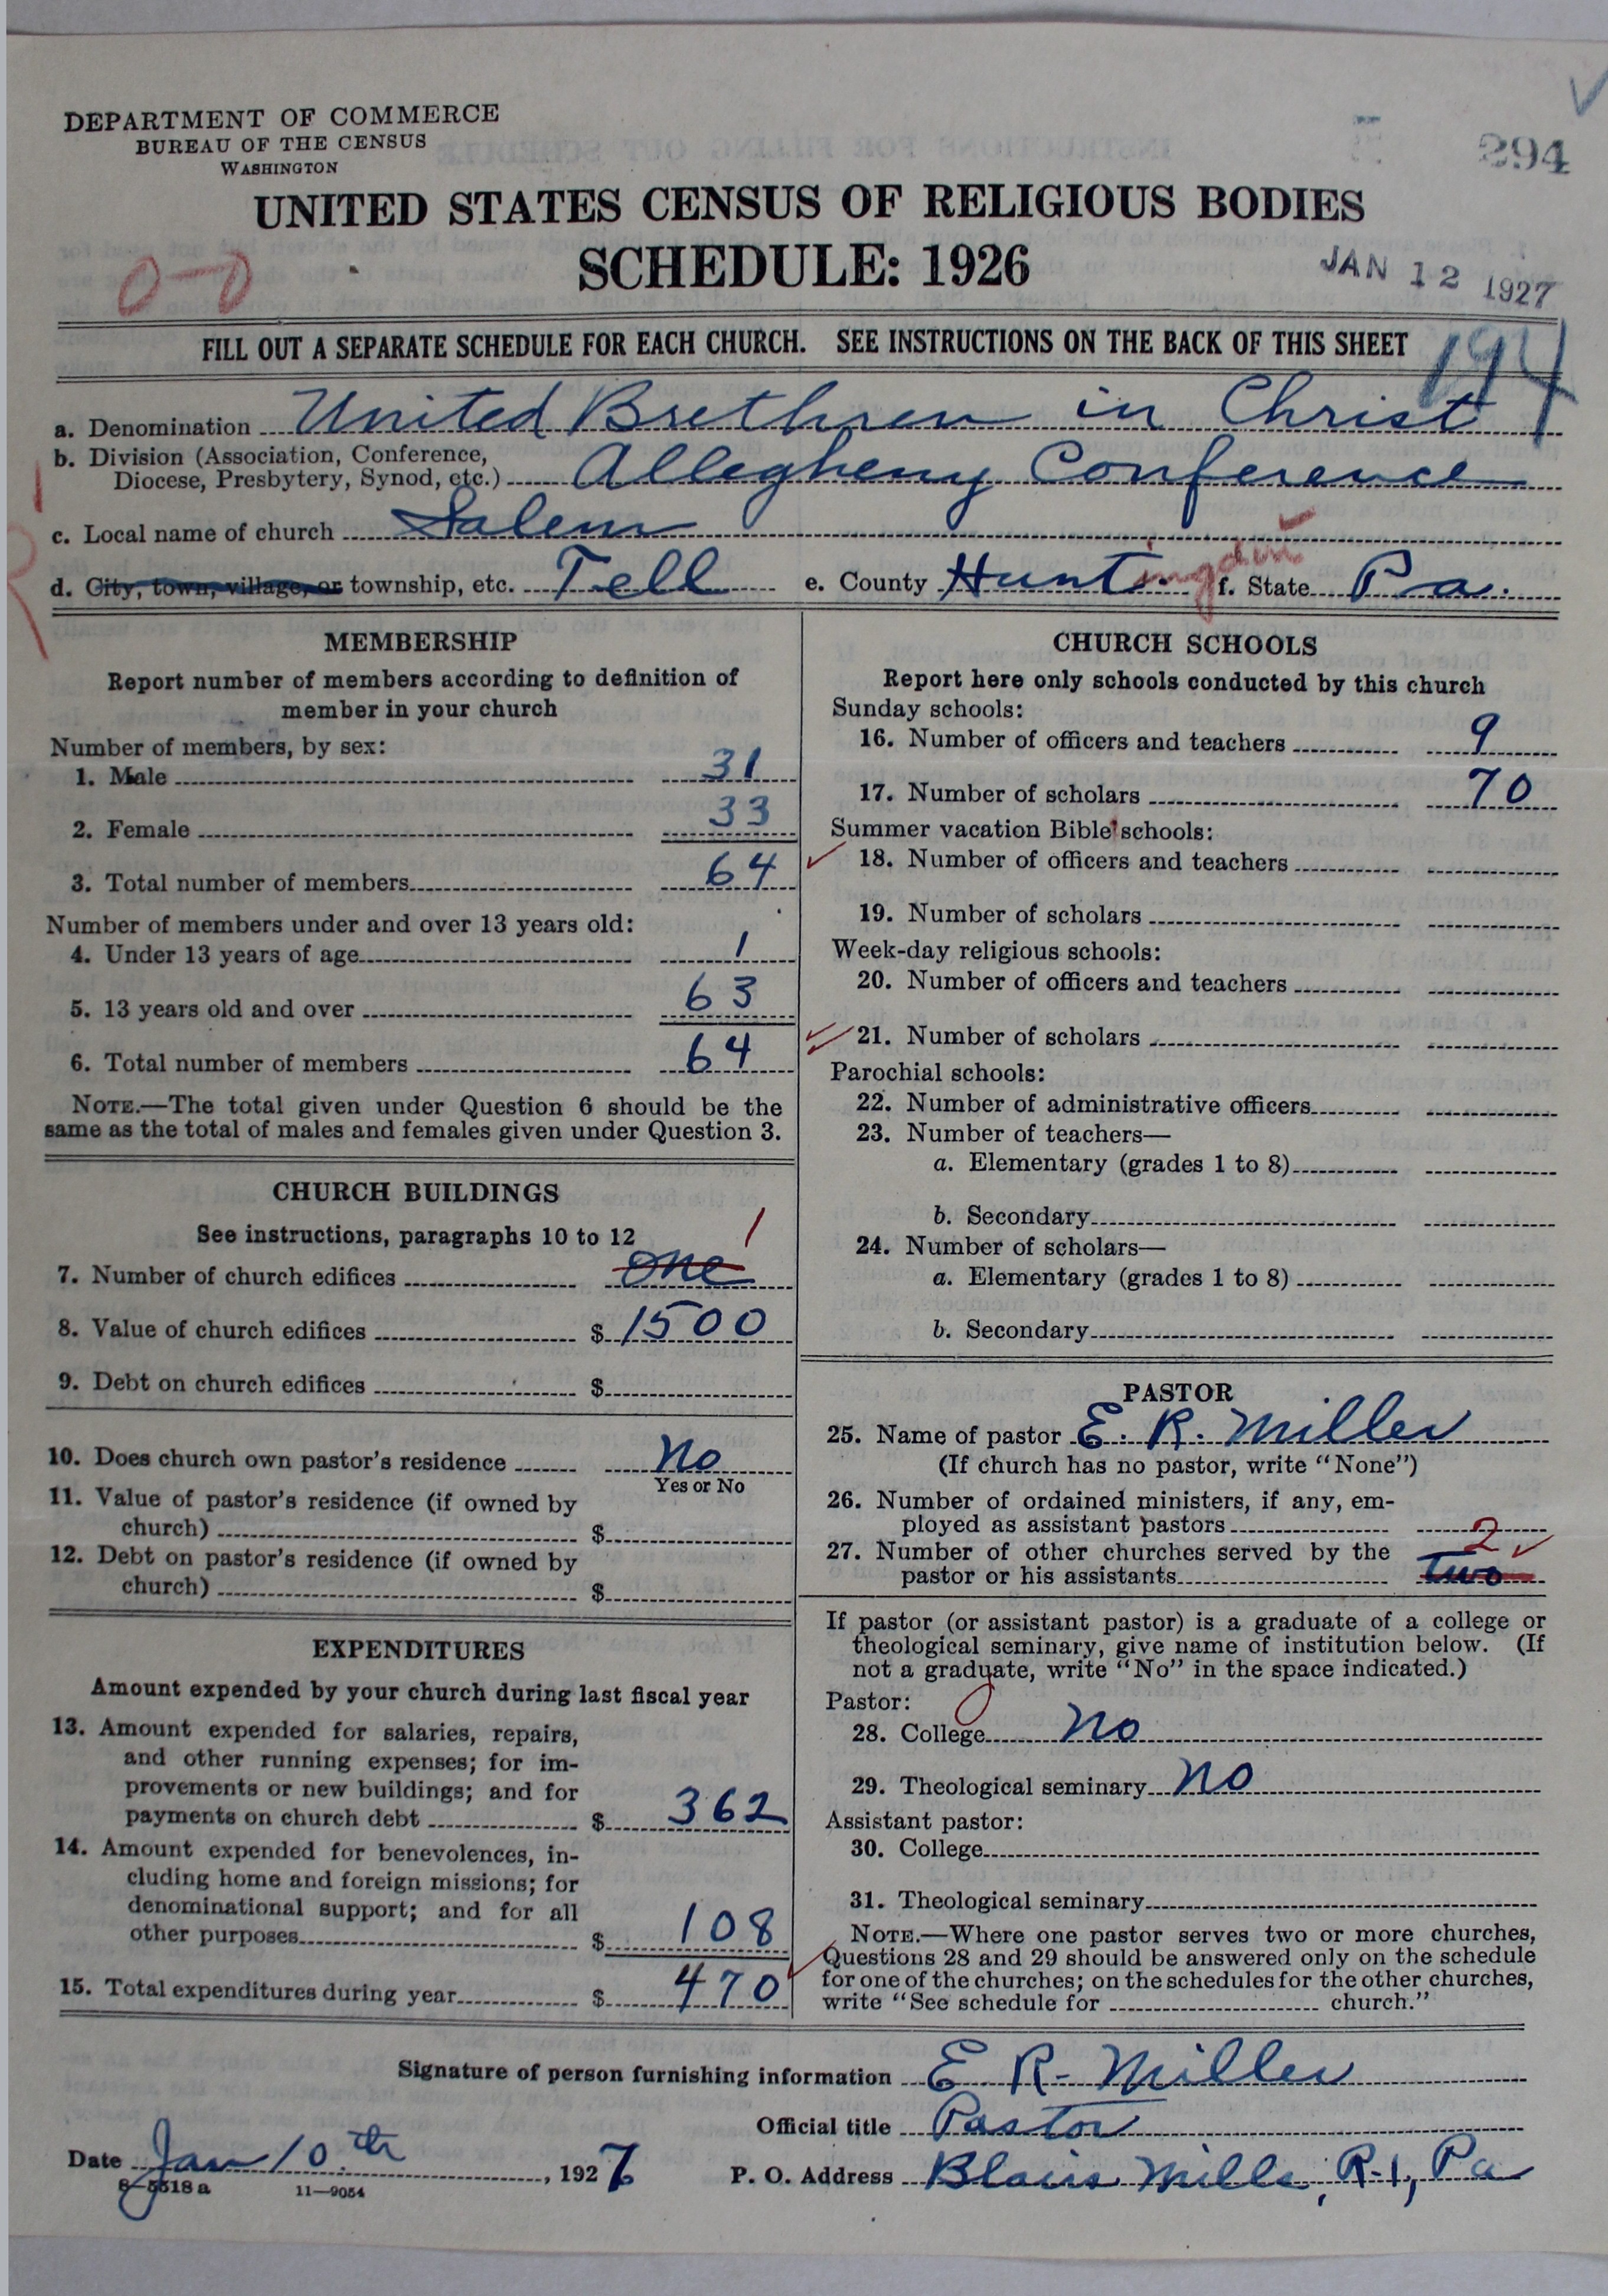 DEPARTMENT OF COMMERCE
BUREAU OF THE CENSUS
WASHINGTON
294
UNITED STATES CENSUS OF RELIGIOUS BODIES
SCHEDULE: 1926
JAN 12 1927
0-0
FILL OUT A SEPARATE SCHEDULE FOR EACH CHURCH. SEE INSTRUCTIONS ON THE BACK OF THIS SHEET
194
a. Denomination United Brethren in Christ
b. Division (Association, Conference,
Diocese, Presbytery, Synod, etc.) Allegheny Conference
c. Local name of church Salem
d. City, town, village, or township, etc. Tell e. County Huntingdon f. State Pa.
MEMBERSHIP
Report number of members according to definition of
member in your church
Number of members, by sex:
1. Male 31
2. Female 33
3. Total number of members 64
Number of members under and over 13 years old:
4. Under 13 years of age 1
5. 13 years old and over 63
6. Total number of members 64
NOTE.—The total given under Question 6 should be the
same as the total of males and females given under Question 3.
CHURCH BUILDINGS
See instructions, paragraphs 10 to 12
1
7. Number of church edifices one
8. Value of church edifices $ 1500
9. Debt on church edifices $
10. Does church own pastor's residence No
Yes or No
11. Value of pastor's residence (if owned by
church) $
12. Debt on pastor's residence (if owned by
church) $
EXPENDITURES
Amount expended by your church during last fiscal year
13. Amount expended for salaries, repairs,
and other running expenses; for im-
provements or new buildings; and for
payments on church debt $ 362
14. Amount expended for benevolences, in-
cluding home and foreign missions; for
denominational support; and for all
other purposes $ 108
15. Total expenditures during year $ 470
CHURCH SCHOOLS
Report here only schools conducted by this church
Sunday schools:
16. Number of officers and teachers 9
17. Number of scholars 70
Summer vacation Bible schools:
18. Number of officers and teachers
19. Number of scholars
Week-day religious schools:
20. Number of officers and teachers
21. Number of scholars
Parochial schools:
22. Number of administrative officers
23. Number of teachers—
a. Elementary (grades 1 to 8)
b. Secondary
24. Number of scholars—
a. Elementary (grades 1 to 8)
b. Secondary
PASTOR
25. Name of pastor E. R. Miller
(If church has no pastor, write "None")
26. Number of ordained ministers, if any, em-
ployed as assistant pastors
2
27. Number of other churches served by the
pastor or his assistants two
If pastor (or assistant pastor) is a graduate of a college or
theological seminary, give name of institution below. (If
not a graduate, write "No" in the space indicated.)
Pastor:
28. College No
29. Theological seminary No
Assistant pastor:
30. College
31. Theological seminary
NOTE.—Where one pastor serves two or more churches,
Questions 28 and 29 should be answered only on the schedule
for one of the churches; on the schedules for the other churches,
write "See schedule for church."
Signature of person furnishing information E. R. Miller
Official title Pastor
Date Jan 10th, 1927
P. O. Address Blairs Mills, R-1, Pa
8—5518a 11—9054